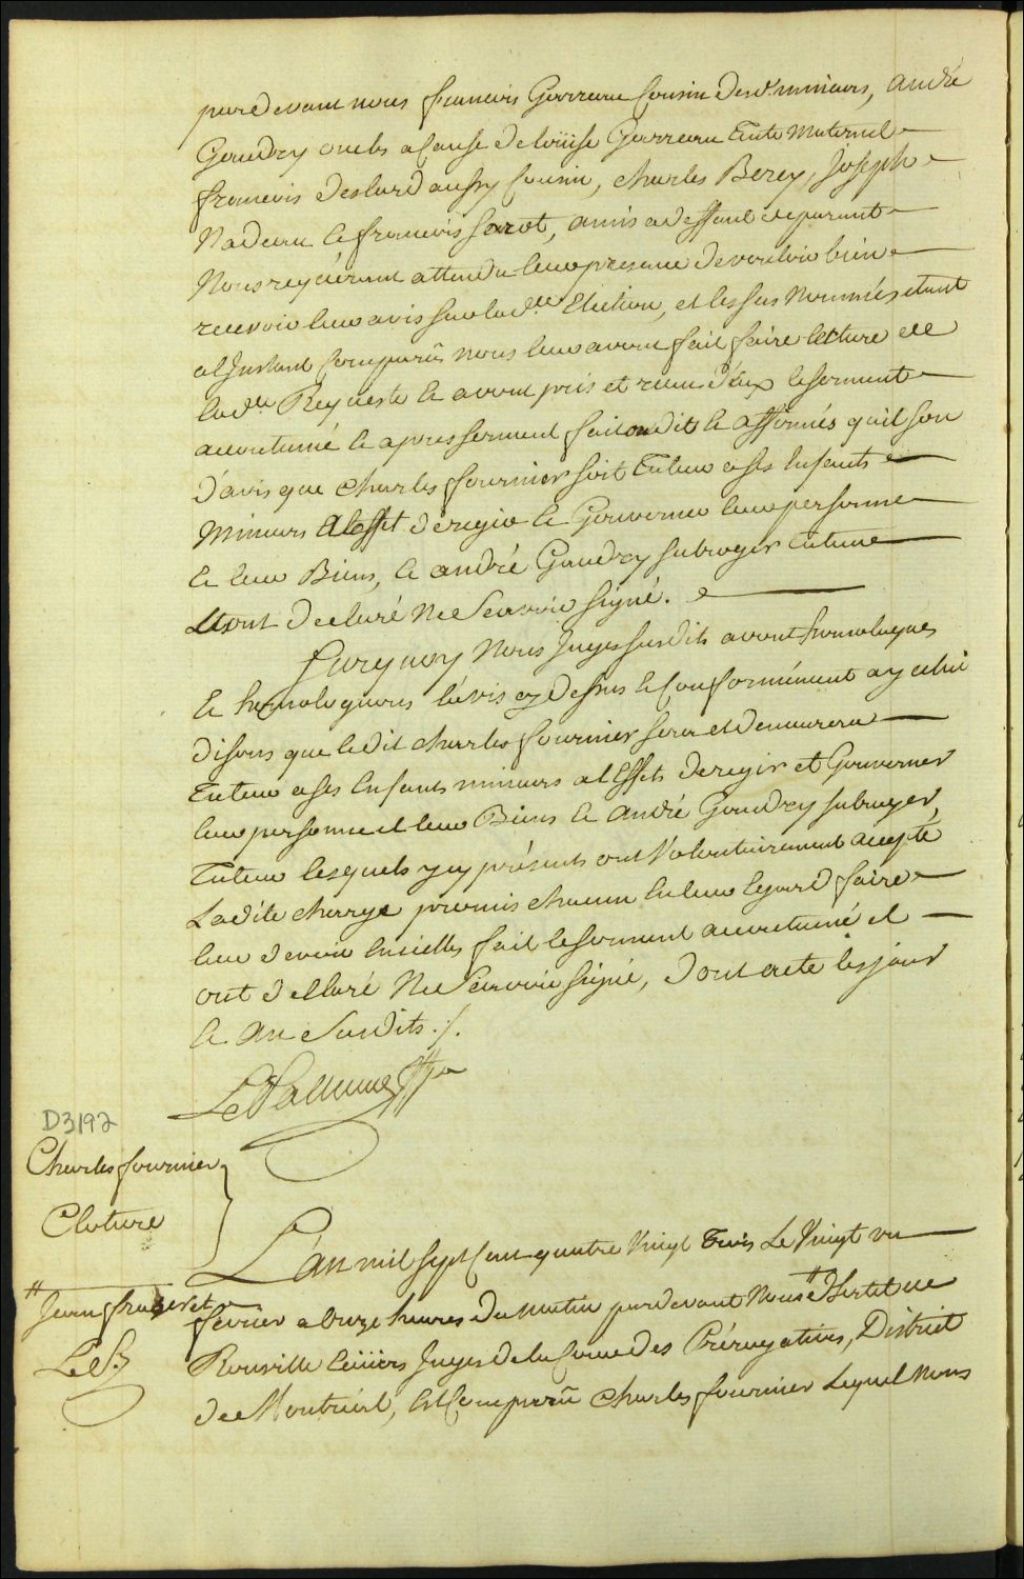 pardevant nous francois Gorreau Cousin desd. mineurs, andré
Goudry oncle a Cause de loüise Gorreau Tante Maternel
francois deslard aussy Cousin, charles Berey, Joseph
Nadeau & francois Sarot, amis a deffaut de parant
Nous requérant attendu leur presance de vouloir bien
recevoir leur avis sur lad.te Election, et les sus Nommés etant
al Jnstant Comparû nous leur avons fait faire lecture de
lad.te Requeste & avons pris et recu d'eux le serment
acoutumé & apres serment fait ondits & affirmés quil son
d'avis que charles fournier soit Tuteur a ses Enfants
Mineurs al effet de regir & Gouverner leur personne
& leur Biens, & andré Goudry subroger tuteur
& ont declaré Ne Scavoir signé.
Surquoy Nous Juges susdits avont homologués
& homologuons lavis cy dessus & Conformément ayceluy
disons que ledit charles fournier sera et demeurera
Tuteur a ses Enfants mineurs al Effets deregir et Gouverner
leur personne et leur Biens & andré Goudry subroger
Tuteur lesquels ycy présents ont Volontairement accepté
Ladite charge promis chacun En leur Egard faire
leur devoir Enicelles fait le serment acoutumé et
ont declaré Ne Scavoir signé, dont acte les jour
& an Susdits ./.
D3192
Charles fournier
Cloture
L'an mil sept Cent quatre Vingt Trois Le Vingt un
# Jean fraser et
fevrier a onze heures du matin pardevant Nous # d'hertel de
Rouville Ecüiiers Juges de la Cour des Prérogatives, District
de Montréal, Est Comparû charles fournier Lequel Nous